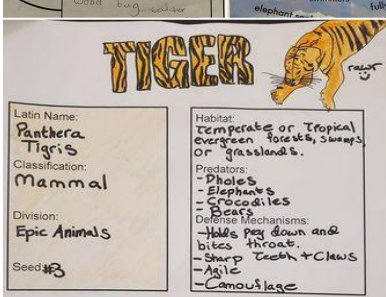 Good bug
elephant
fully
TIGER
rawr
Latin Name:
Panthera
Tigris
Classification:
Mammal
Division:
Epic Animals
Seed:#3
Habitat:
Temperate or Tropical
evergreen forests, swamps,
or grasslands.
Predators:
-Dholes
-Elephants
-Crocodiles
-Bears
Defense Mechanisms:
-Holds prey down and
bites throat.
-Sharp Teeth + Claws
-Agile
-Camouflage